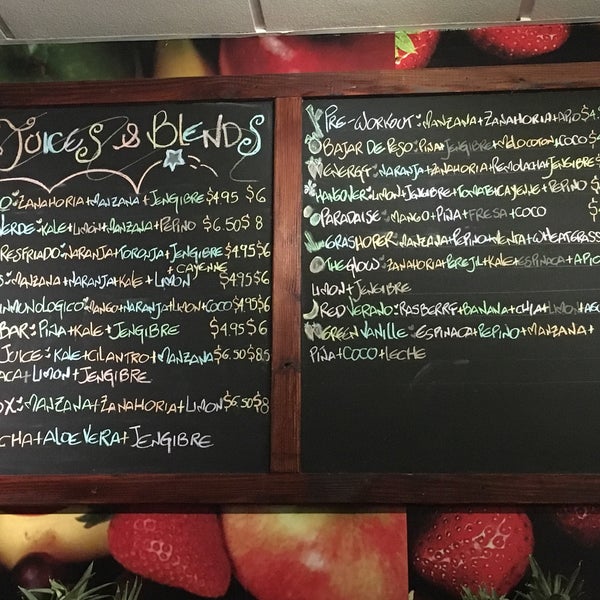 JUICES & BLENDS
ZANAHORIA+MANZANA+JENGIBRE $4.95 $6
VERDE:KALE+LIMON+MANZANA+PEPINO $6.50 $8
RESFRIADO:NARANJA+TORONJA+JENGIBRE $4.95 $6
+CAYENNE
MANZANA+NARANJA+KALE+LIMON $4.95 $6
INMUNOLOGICO:MANGO+NARANJA+LIMON+COCO $4.95 $6
BAR:PIÑA+KALE+JENGIBRE $4.95 $6
JUICE:KALE+CILANTRO+MANZANA $6.50 $8.5
ACA+LIMON+JENGIBRE
OX:MANZANA+ZANAHORIA+LIMON $6.50 $8
CHA+ALOE VERA+JENGIBRE
PRE-WORKOUT:MANZANA+ZANAHORIA+APIO $4.
BAJAR DE PESO:PIÑA+JENGIBRE+MELOCOTON+COCO $4
ENERGY:NARANJA+ZANAHORIA+REMOLACHA+JENGIBRE $
HANGOVER:LIMON+JENGIBRE+TOMATE+CAYENNE+PEPINO $
PARADAISE:MANGO+PIÑA+FRESA+COCO $
GRASHOPER:MANZANA+PEPINO+MENTA+WHEATGRASS
THE GLOW:ZANAHORIA+PEREJIL+KALE+ESPINACA+APIO
LIMON+JENGIBRE
RED VERANO:RASBERRY+BANANA+CHIA+LIMON+AG
GREEN VANILLE:ESPINACA+PEPINO+MANZANA+
PIÑA+COCO+LECHE